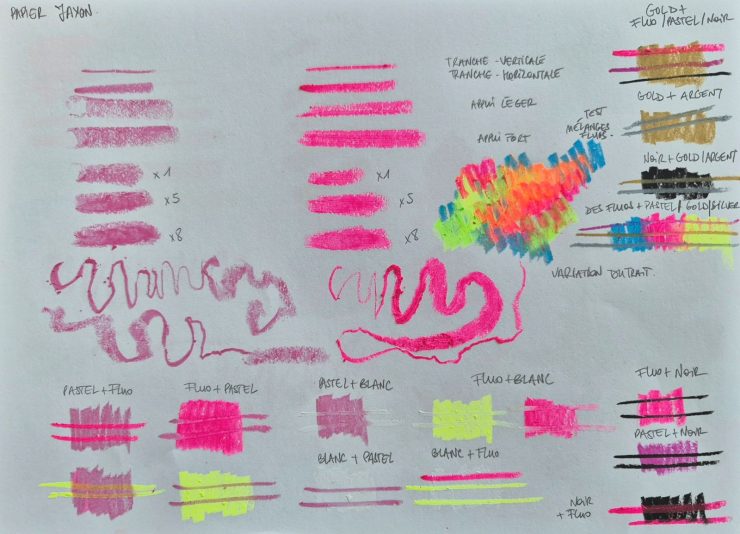 PAPIER JAXON
GOLD +
FLUO / PASTEL / NOIR
TRANCHE - VERTICALE
TRANCHE - HORIZONTALE
APPUI LÉGER
APPUI FORT
TEST
MÉLANGES
FLUOS.
GOLD + ARGENT
NOIR + GOLD/ARGENT
DES FLUOS + PASTEL / GOLD/SILVER
x1
x5
x8
x1
x5
x8
VARIATION DU TRAIT.
PASTEL + FLUO
FLUO + PASTEL
PASTEL + BLANC
FLUO + BLANC
FLUO + NOIR
PASTEL + NOIR
BLANC + PASTEL
BLANC + FLUO
NOIR
+ FLUO